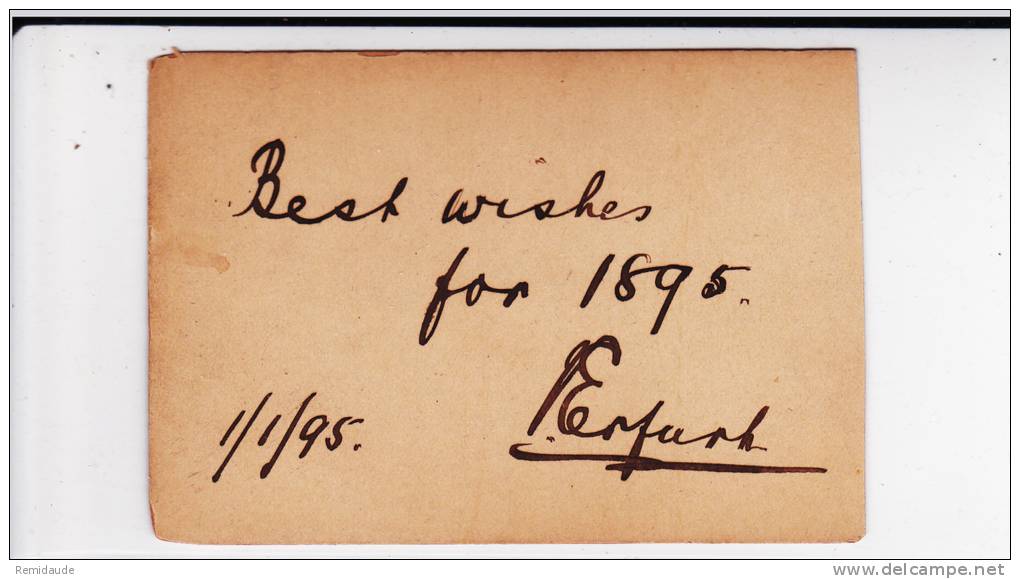 Best wishes
for 1895.
1/1/95.
Erfurt
Remidaude
www.delcampe.net